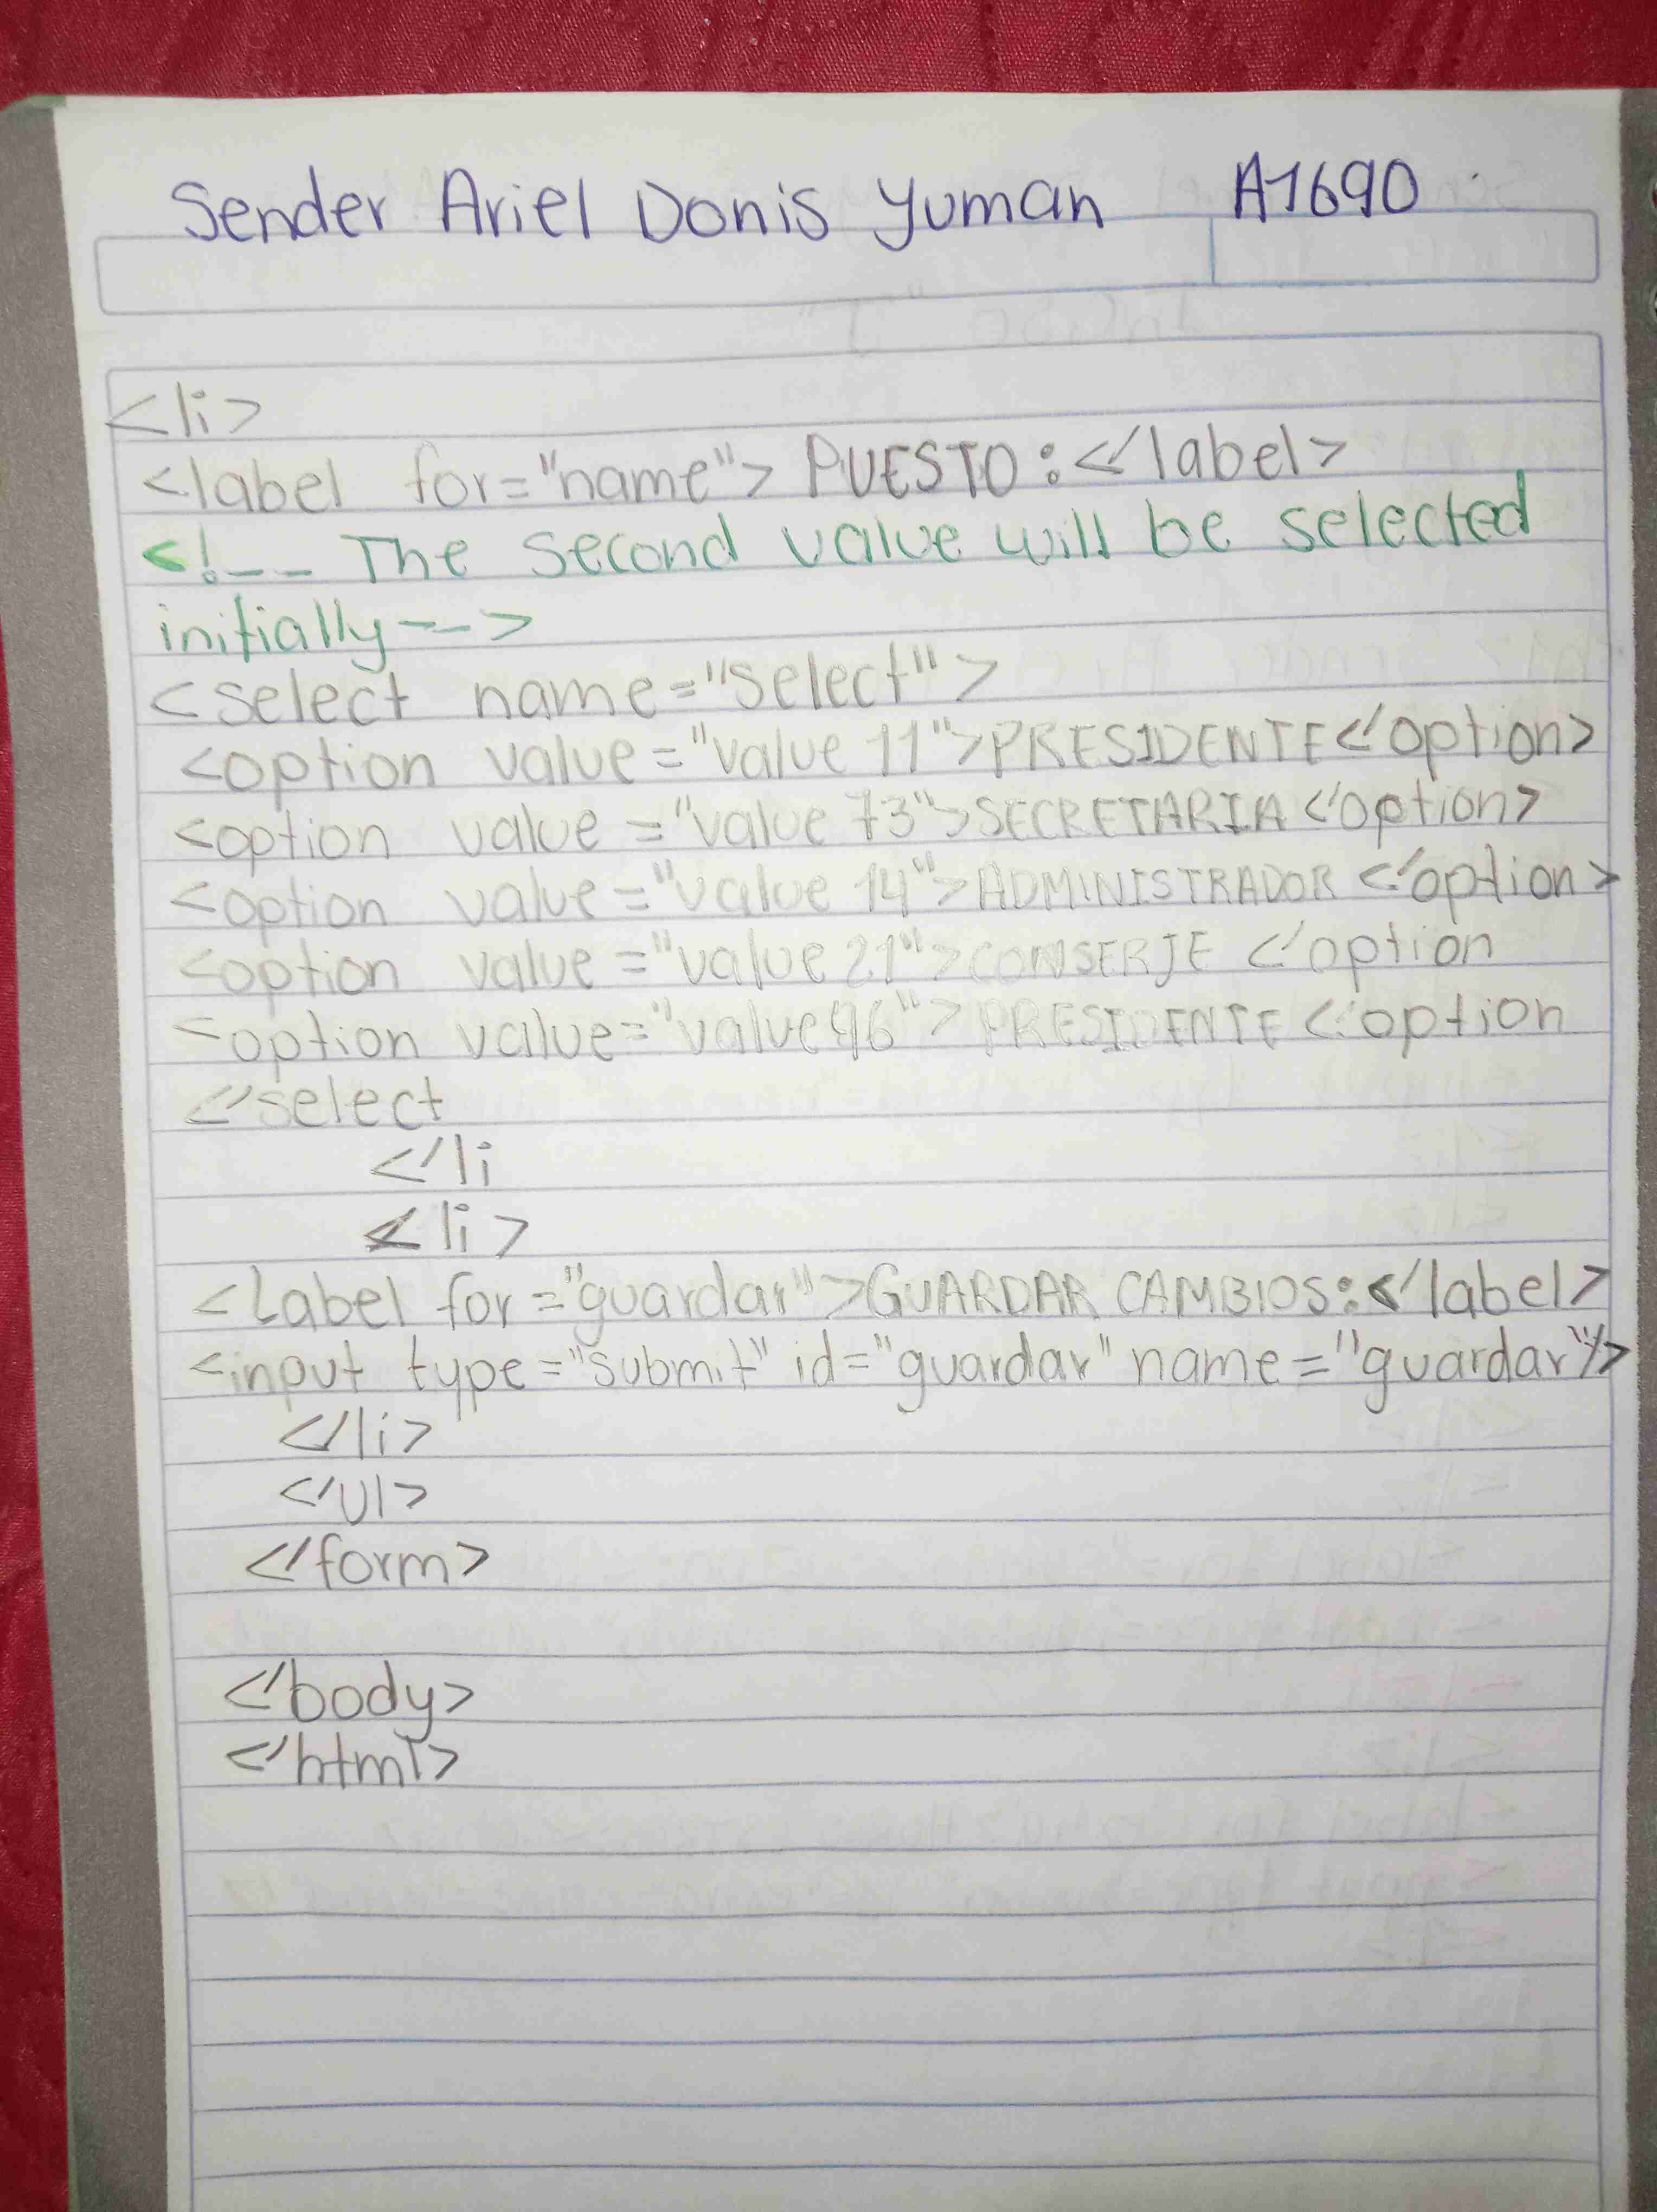 Sender Ariel Donis Yuman A1690
<li>
<label for="name"> PUESTO:</label>
<!-- The second value will be selected
initially-->
<select name="select">
<option value="value 11">PRESIDENTE</option>
<option value="value 73">SECRETARIA</option>
<option value="value 14">ADMINISTRADOR </option>
<option value="value 21">CONSERJE </option
<option value="value 96">PRESIDENTE </option
</select
</li
<li>
<Label for="guardar">GUARDAR CAMBIOS:</label>
<input type="submit" id="guardar" name="guardar"/>
</li>
</ul>
</form>
</body>
</html>